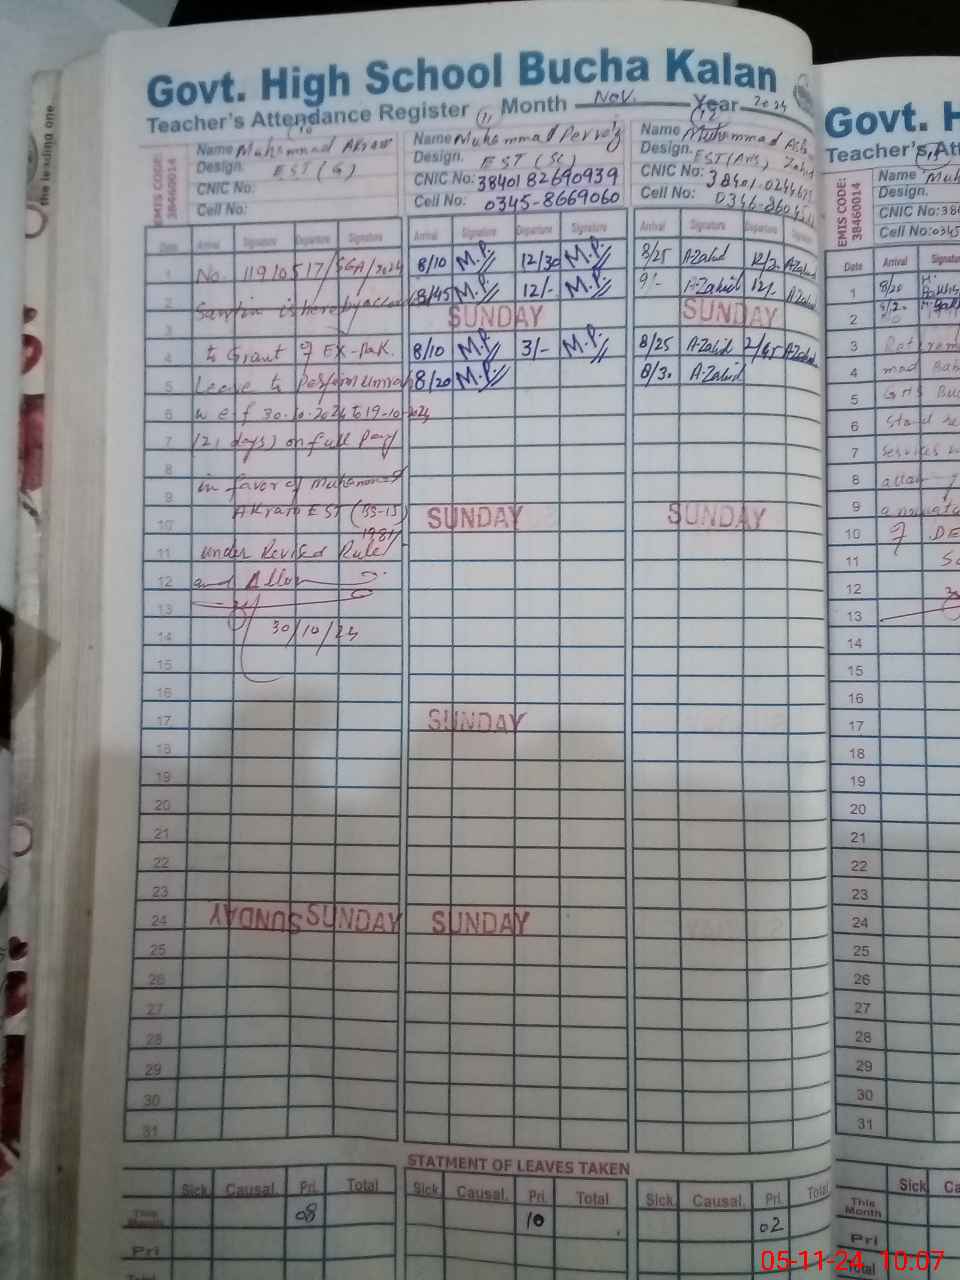 the leading one.
Govt. High School Bucha Kalan
Teacher's Attendance Register Month Nov. Year 2024
EMIS CODE: 38460014
Name Muhammad Akram
Design. EST (G)
CNIC No:
Cell No:
Name Muhammad Pervez
Design. EST (Sc)
CNIC No: 38401 82690939
Cell No: 0345-8669060
Name Muhammad
Design. EST (Arts) Zahid
CNIC No:
Cell No:
Date Arrival Signature Departure Signature Arrival Signature Departure Signature Arrival Signature Departure Signature
1 No. 8/10 M.P. 12/30 M.P. 8/25 A-Zahid A-Zahid
2 8/45 M.P. 12/- M.P. 9/- A-Zahid 12/- A-Zahid
3 SUNDAY SUNDAY
4 to Grant of EX-Pak. 8/10 M.P. 3/- M.P. 8/25 A-Zahid 2/45 A-Zahid
5 Leave to perform Umrah 8/20 M.P. 8/3. A-Zahid
6 w e f 30-10-2024 to 19-10-2024
7 (21 days) on full Pay
8
9 in favor of Muhammad
10 Akram EST (BS-15) SUNDAY SUNDAY
1981
11 under Revised Rule
12 and Allow
13
14 30/10/24
15
16
17 SUNDAY
18
19
20
21
22
23
24 SUNDAY SUNDAY SUNDAY
25
26
27
28
29
30
31
STATMENT OF LEAVES TAKEN
Sick Causal. Pri. Total Sick Causal. Pri. Total Sick Causal. Pri. Total
This Month 08 10 02
Pri
Total
Govt. H
Teacher's Att
EMIS CODE: 38460014
Name Muh
Design.
CNIC No: 38
Cell No: 0345
Date Arrival Signatu
1 8/20
2
3
4
5
6
7
8
9
10
11
12
13
14
15
16
17
18
19
20
21
22
23
24
25
26
27
28
29
30
31
Sick Ca
This Month
Pri
Total
05-11-24 10:07